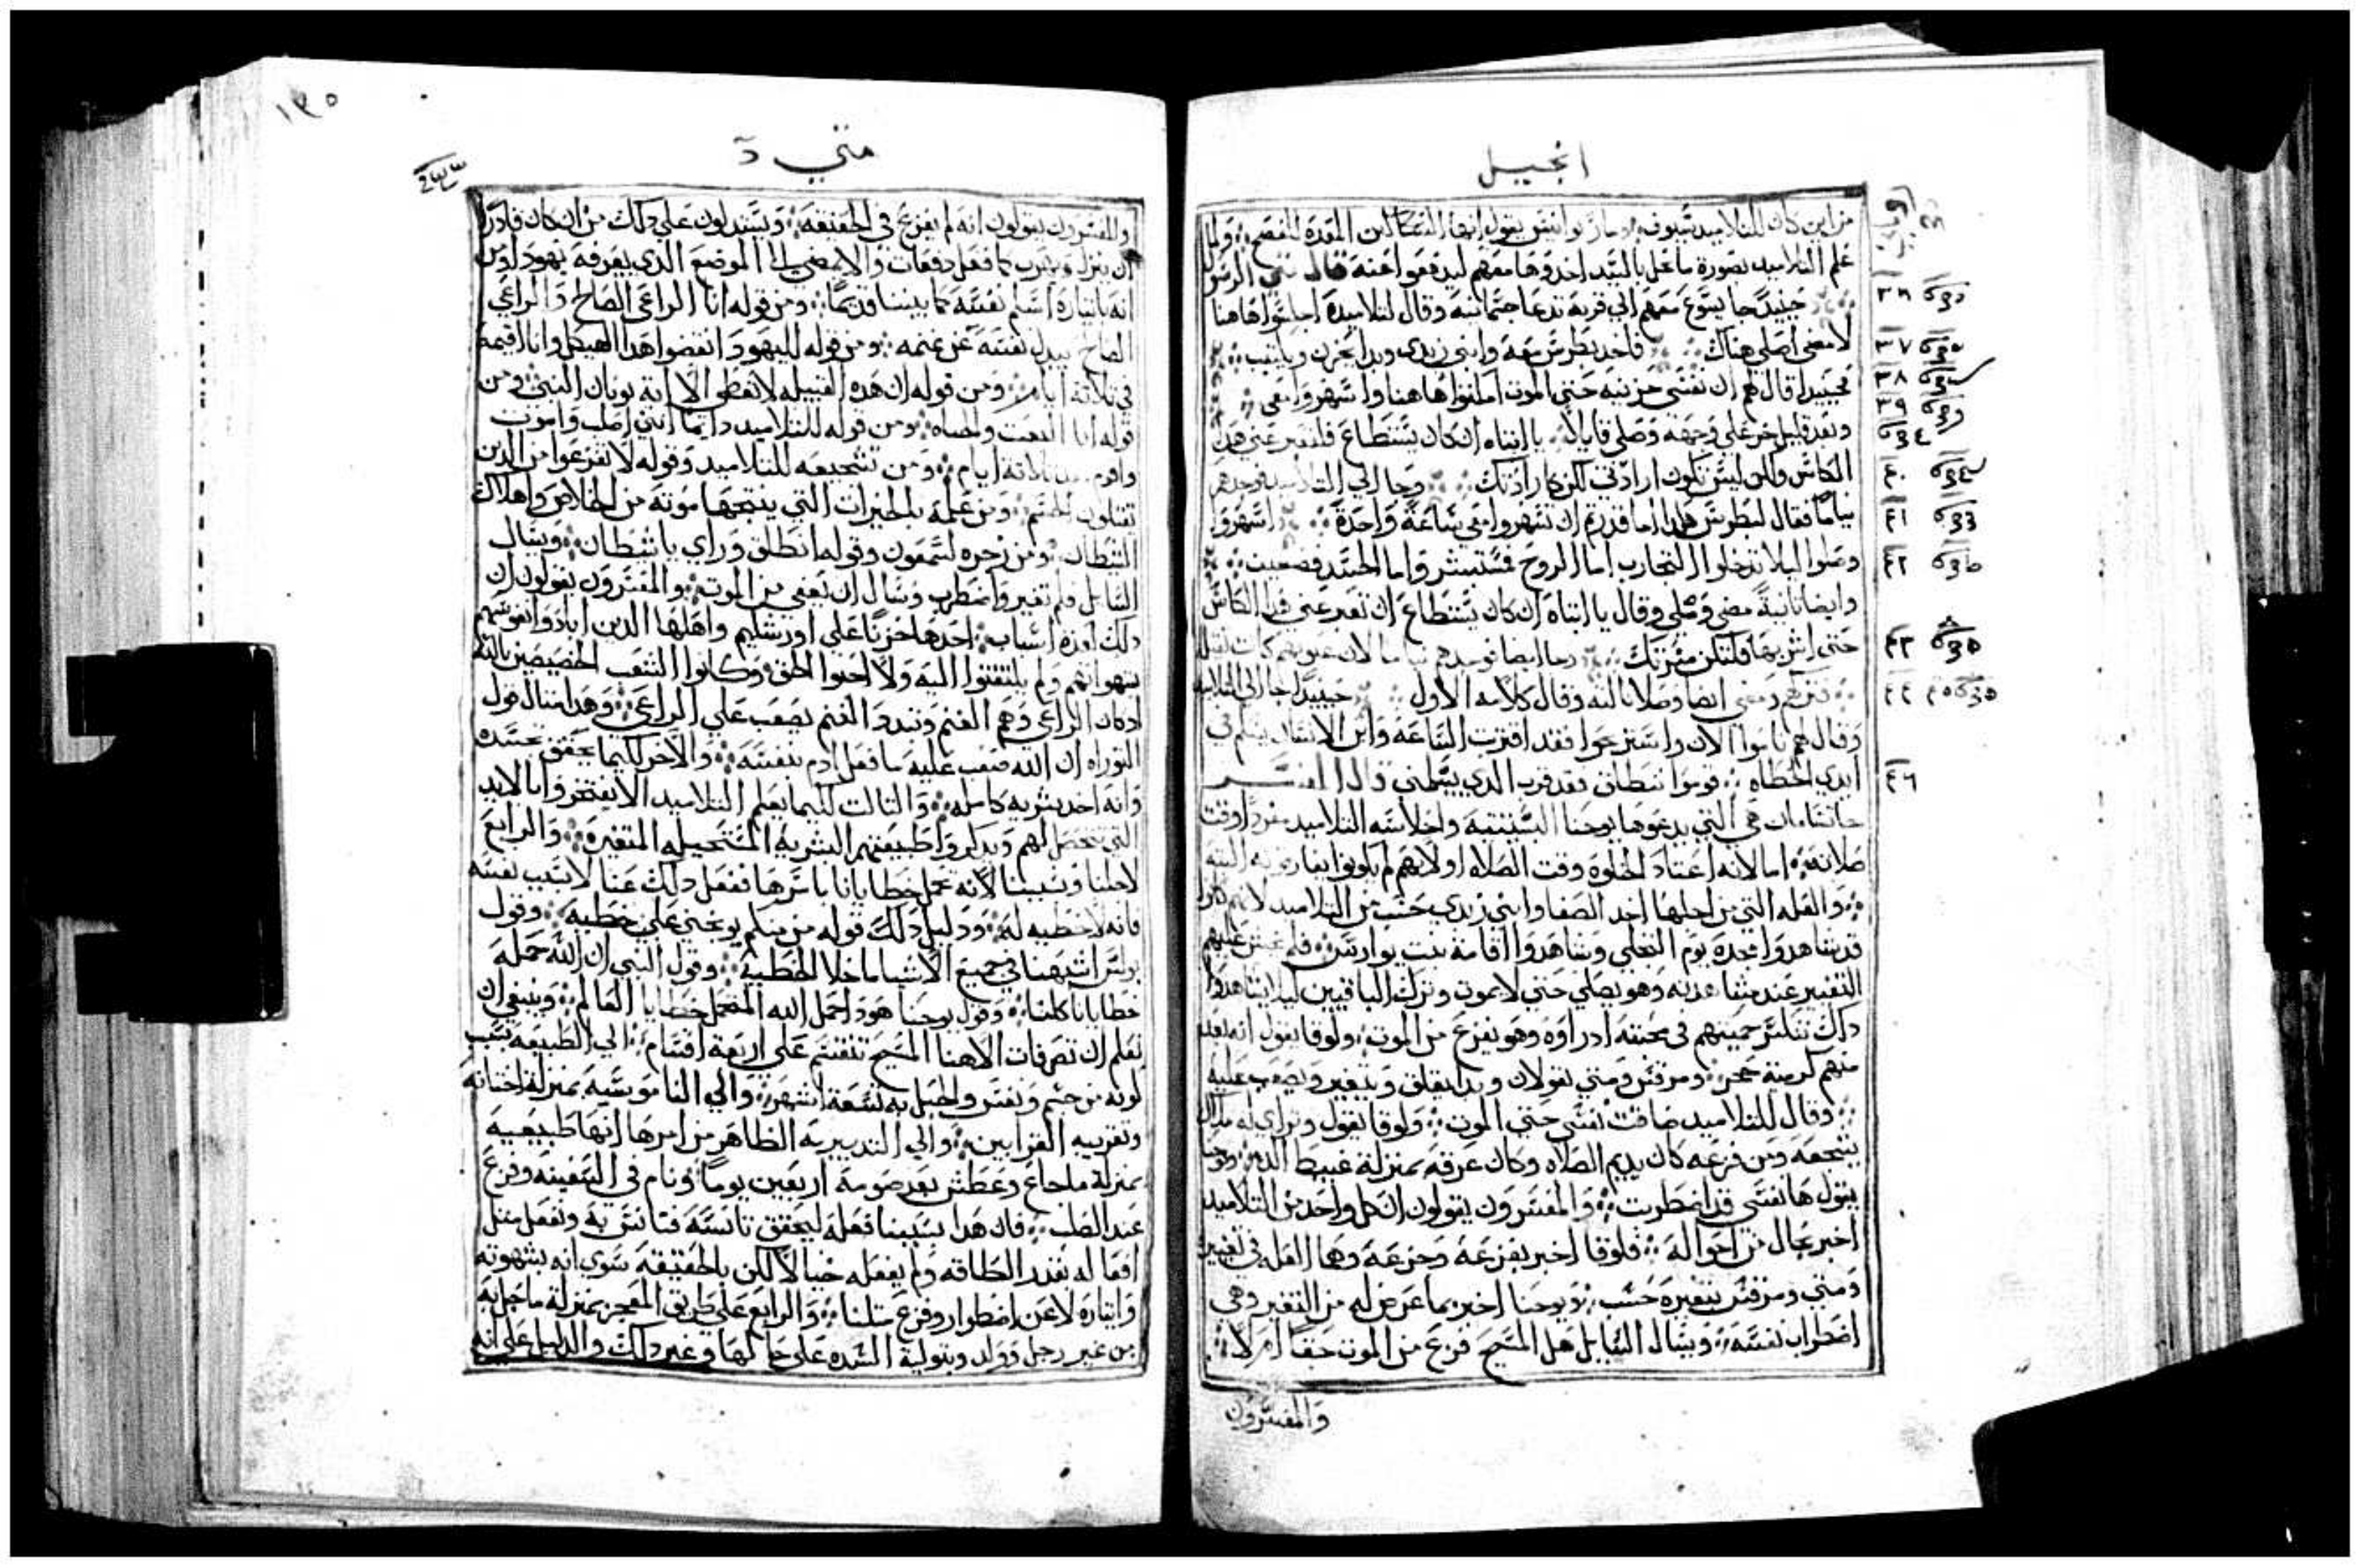 انجيل
من اين كان للتلاميذ سيوف وماربوانيس يقول انها السكاكين المعدة للفصح ولما
علم التلاميد بصورة ما عمل بالسيد اخدوها معهم ليدفعوا عنه قال متي الرسول
حينيدٍ جا يسوع معهم الي قرية تدعا جتسمانيه وقال لتلاميده اجلسوا هاهنا
لامضي اصلي هناك فاخد بطرس معه وابني زبدي وبدا يحزن ويكتيب
فحينيد قال لهم ان نفسي حزينه حتي الموت امكثوا هاهنا واسهروا معي
وبعد قليل خر علي وجهه وصلي قايلاً يا ابتاه ان كان يستطاع فلتعبر عني هده
الكاس ولكن ليس تكون ارادتي لكن كارادتك وجا الي التلاميد فوجدهم
نياماً فقال لبطرس هكدا ما قدرتم ان تسهروا معي ساعة واحدة اسهروا
وصلوا ليلا تدخلوا التجارب اما الروح فمستبشر واما الجسد فضعيف
وايضا ثانية مضي وصلي وقال يا ابتاه ان كان يستطاع ان تعبر عني هده الكاس
حتي اشربها فلتكن مسرتك وجا ايضا فوجدهم نياما لان عيونهم كانت ثقيلة
فتركهم ومضي ايضا وصلا ثالثه وقال كلامه الاول حينيد جا الي التلاميد
وقال لهم ناموا الان واستريحوا فقد اقترت الساعة وابن الانسان يسلم في
ايدي الخطاه قوموا ننطلق فقد قرب الدي يسلمني قال المفسر
جاتسامان هي التي يدعوها يوحنا البستنيه واجلاسه التلاميد مفرداً وقت
صلاته اما لانه اعتاد الخلوة وقت الصلاه او لانهم لم يكونوا يفارقونه البته
والعله التي من اجلها اخد الصفا وابني زبدي حسب من التلاميد لانهم كانوا
قد شاهدوا مجده يوم التجلي وشاهدوا اقامة بنت يوارس فلم يخش عليهم
التغيير عند مشاهدته وهو يصلي حتي لا يموت وترك الباقيين ليلا يشاهدوا
دلك تنكسر حميتهم في محبته اد راوه وهو يفزع من الموت ولوقا يقول انه بعد
منهم كرمية حجر ومرقس ومتي يقولان وبدا يقلق ويتغير ويصعب عليه
وقال للتلاميد ضاقت نفسي حتي الموت ولوقا يقول وتراي له ملاك
يشجعه ومن فزعه كان يديم الصلاه وكان عرقه بمنزلة غبيط الدم ويوحنا
يقول ها نفسي قد اضطربت والمفسرون يقولون ان كل واحد من التلاميد
اخبر بحال من احواله فلوقا اخبر بفزعه وجزعه وها العله في تغيره
ومتي ومرقس بتغيره حسب ويوحنا اخبر بما عرض له من التغير وهي
اضطراب نفسه ويسال السايل هل المسيح فزع من الموت حقاً ام لا
والمفسرون
٣٦
٣٧
٣٨
٣٩
٤٠
٤١
٤٢
٤٣
٤٤ ٤٥
٤٦
١٣٥
متي
والمفسرون يقولون انه لم يفزع في الحقيقة ويستدلون علي دلك من ان كان قادرا
ان ينزل ويهرب كما فعل دفعات والا يمضي الي الموضع الدي يعرفه يهودا ومن
انه بايثاره اسلم نفسه كما بيننا قديماً ومن قوله انا الراعي الصالح والراعي
الصالح يبدل نفسه عن غنمه ومن قوله لليهود انقضوا هدا الهيكل وانا اقيمه
في ثلاثة ايام ومن قوله ان هده القبيله لا تعطي الا اية يونان النبي ومن
قوله انا البعث والحياه ومن قوله للتلاميد دايما انني اصلب واموت
واقوم بعد ثلاثة ايام ومن تشجيعه للتلاميد وقوله لا تفزعوا من الدين
يقتلون الجسم ومن علمه بالخيرات التي ينتجها موته من الخلاص واهلاك
الشيطان ومن زجره لشمعون وقوله انطلق وراي يا شيطان ويسال
السايل فلم تغير واضطرب وسال ان يعفي من الموت والمفسرون يقولون ان
دلك لعدة اسباب احدها حزناً علي اورشليم واهلها الدين ابادوا نفوسهم
بشهواتهم ولم يلتفتوا اليه ولا احبوا الحق وكانوا الشعب الخصيصين بالله
ادكان الراعي وهم الغنم وتبدد الغنم يصعب علي الراعي وهدا مثال قول
التوراه ان الله صعب عليه ما فعل ادم بنفسه والاخر لكيما يحقق تجسده
وانه اخد بشريه كامله والثالث لكيما يعلم التلاميد الا يفتخروا بالايد
التي تتحصل لهم ويدكروا طبيعتهم البشرية المستحيله المتغيره والرابع
لاجلنا وبسببنا لانه تحمل خطايانا باسرها ففعل دلك عنا لا بسبب نفسه
فانه لا خطيه له ودليل دلك قوله من منكم يوبخني علي خطيه وقول
بولس اشبهنا في جميع الاشيا ما خلا الخطية وقول النبي ان الله حمله
خطايانا كلنا وقول يوحنا هودا حمل الله المتحمل خطايا العالم وينبغي ان
نعلم ان تصرفات الاهنا المسيح تنقسم علي اربعة اقسام الي الطبيعه بسبب
كونه من جسم ونفس والحبل به تسعة اشهر والي الناموسيه بمنزلة اختتانه
وتقريبه القرابين والي التدبيرية الظاهر من امرها انها طبيعيه
بمنزلة ما جاع وعطش بعد صومه اربعين يوماً ونام في السفينه وفزع
عند الصلب فان هدا بسببنا فعله ليحقق تانسه فتانس به وتفعل مثل
افعاله بقدر الطاقه ولم يفعله خيالا لكن بالحقيقه سوي انه بشهوته
وايثاره لا عن اضطرار وفزع مثلنا والرابع علي طريق المعجز بمنزلة ما حبل به
من غير رجل وولد وبتولية السيده علي حالها وغير دلك والدليل علي انه